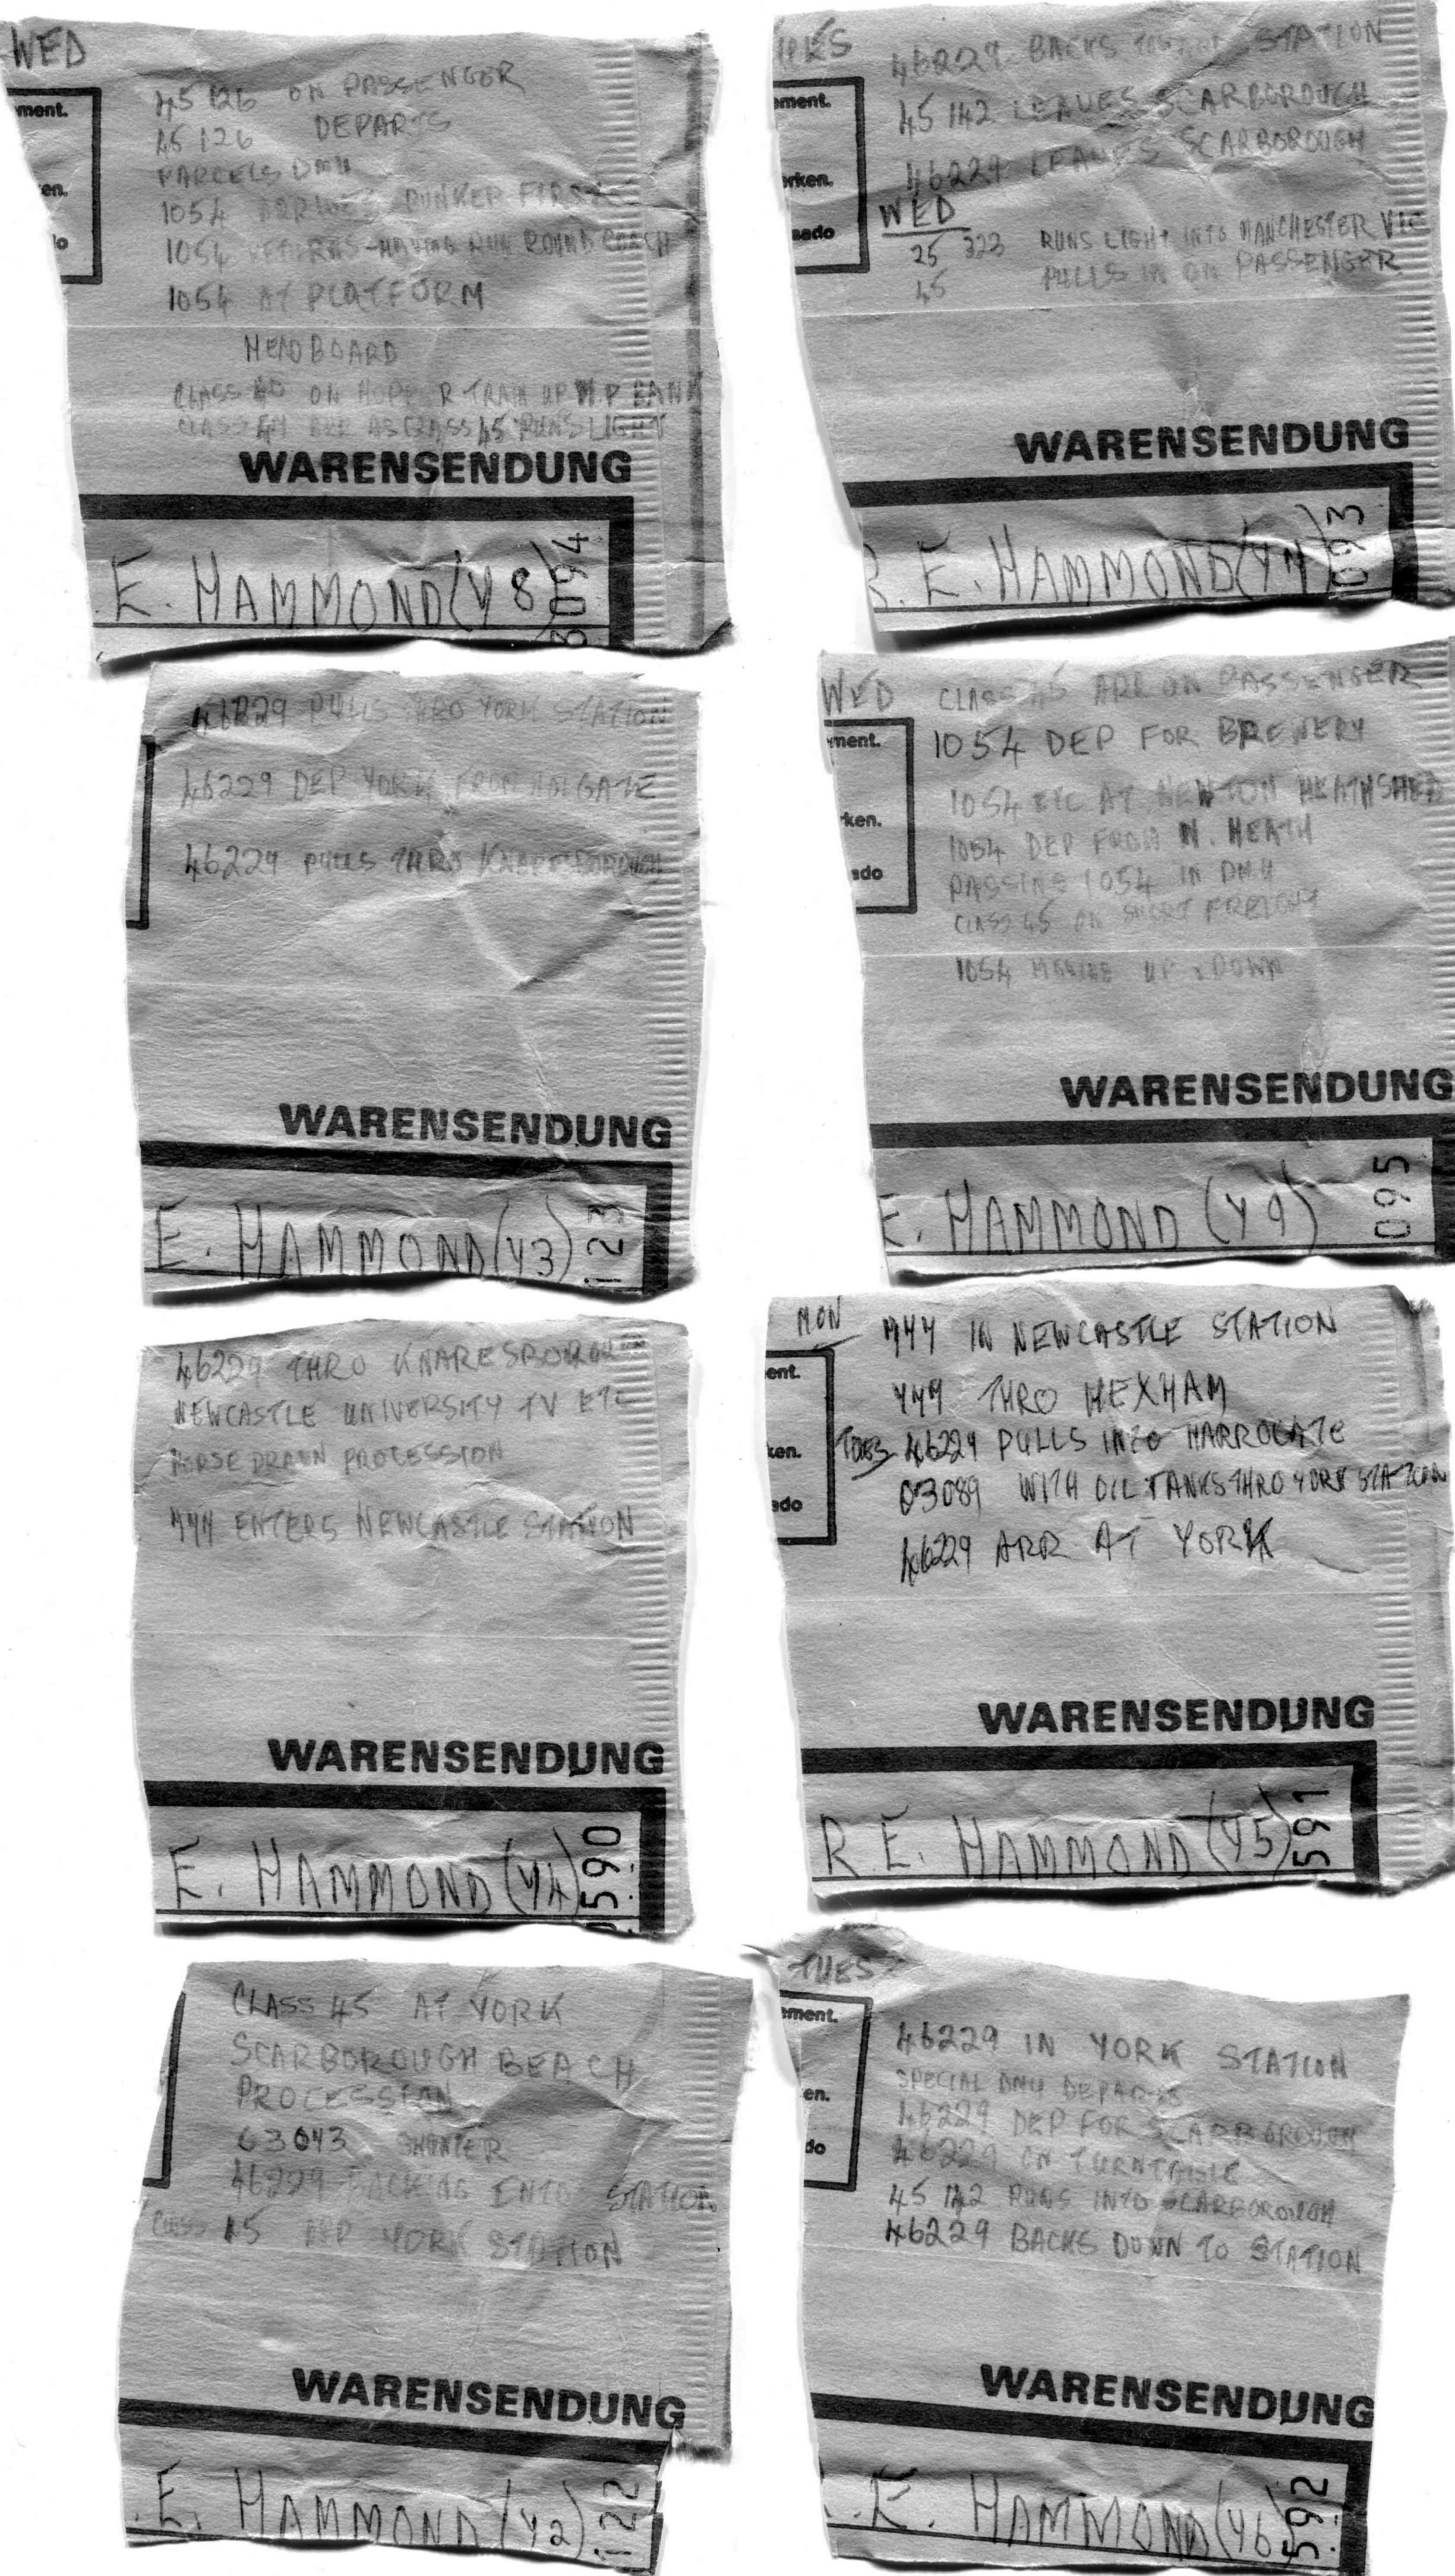 WED
45 126 ON PASSENGER
45 126 DEPARTS
PARCELS DMU
1054 ARRIVES BUNKER FIRST
1054 RETURNS - HAVING RUN ROUND COACH
1054 AT PLATFORM
HEADBOARD
CLASS 40 ON HOPP R TRAIN UP M.P BANK
CLASS ARR AS CLASS 45 RUNS LIGHT
ment.
en.
do
WARENSENDUNG
. E. HAMMOND (Y8)
3094
46229 BACKS STATION
45 142 LEAVES SCARBOROUGH
46229 LEAVES SCARBOROUGH
WED
25 323 RUNS LIGHT INTO MANCHESTER VIC
45 PULLS IN ON PASSENGER
ement.
erken.
sado
WARENSENDUNG
R. E. HAMMOND (Y7)
093
46229 PULLS THRO YORK STATION
46229 DEP YORK FROM HOLGATE
46229 PULLS THRO KNARESBOROUGH
WARENSENDUNG
E. HAMMOND (Y3)
123
WED CLASS 45 ARR ON PASSENGER
1054 DEP FOR BREWERY
1054 ETC AT NEWTON HEATH SHED
1054 DEP FROM N. HEATH
PASSING 1054 IN DMU
CLASS 45 ON SHORT FREIGHT
1054 MOVING UP & DOWN
ment.
ken.
ado
WARENSENDUNG
E. HAMMOND (Y9)
095
46229 THRO KNARESBOROUGH
NEWCASTLE UNIVERSITY TV ETC
HORSE DRAWN PROCESSION
777 ENTERS NEWCASTLE STATION
WARENSENDUNG
E. HAMMOND (Y4)
590
MON 777 IN NEWCASTLE STATION
777 THRO HEXHAM
TUES 46229 PULLS INTO HARROGATE
03089 WITH OIL TANKS THRO YORK STATION
46229 ARR AT YORK
ent.
ken.
ado
WARENSENDUNG
R E. HAMMOND (Y5)
591
CLASS 45 AT YORK
SCARBOROUGH BEACH
PROCESSION
03073 SHUNTER
46229 BACKING INTO STATION
CLASS 45 ARR YORK STATION
WARENSENDUNG
. E. HAMMOND (Y2)
122
TUES
46229 IN YORK STATION
SPECIAL DMU DEPARTS
46229 DEP FOR SCARBOROUGH
46229 ON TURNTABLE
45 142 RUNS INTO SCARBOROUGH
46229 BACKS DOWN TO STATION
ement.
en.
do
WARENSENDUNG
. E. HAMMOND (Y6)
592